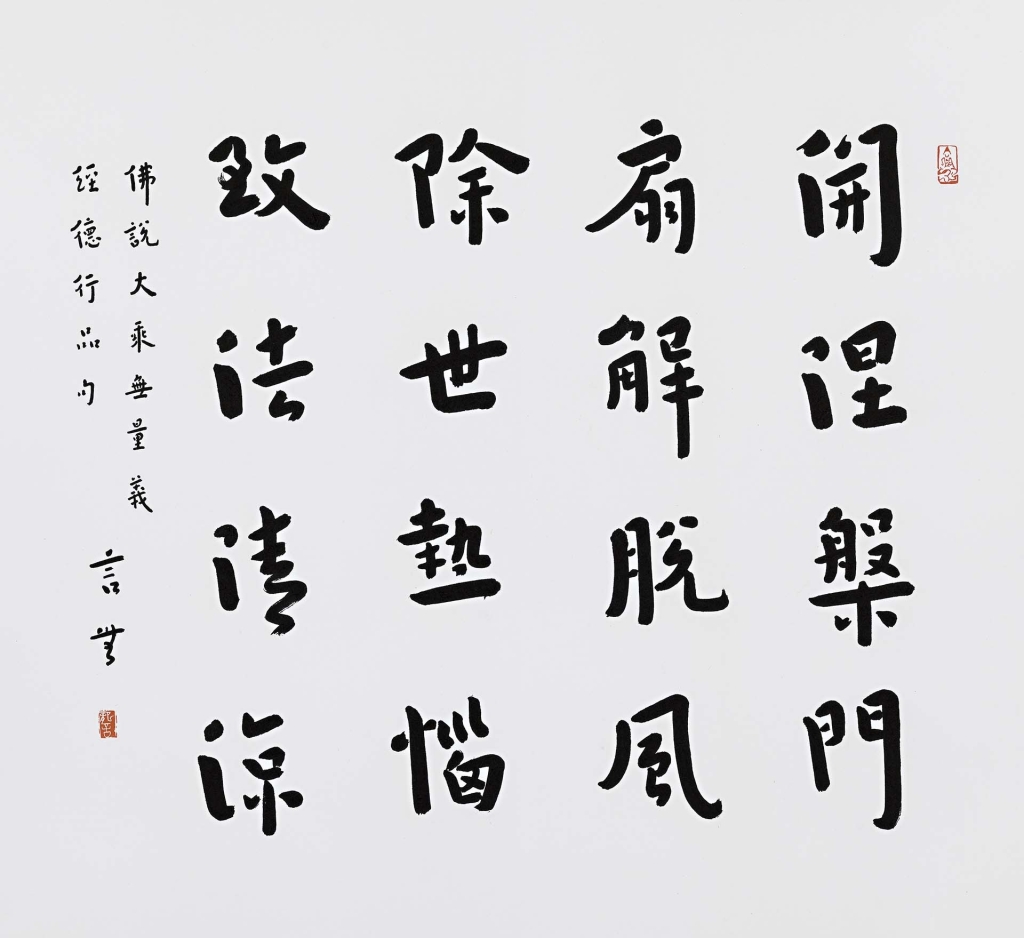 開涅槃門
扇解脱風
除世熱惱
致法清涼
佛說大乘無量義
經德行品句
言無